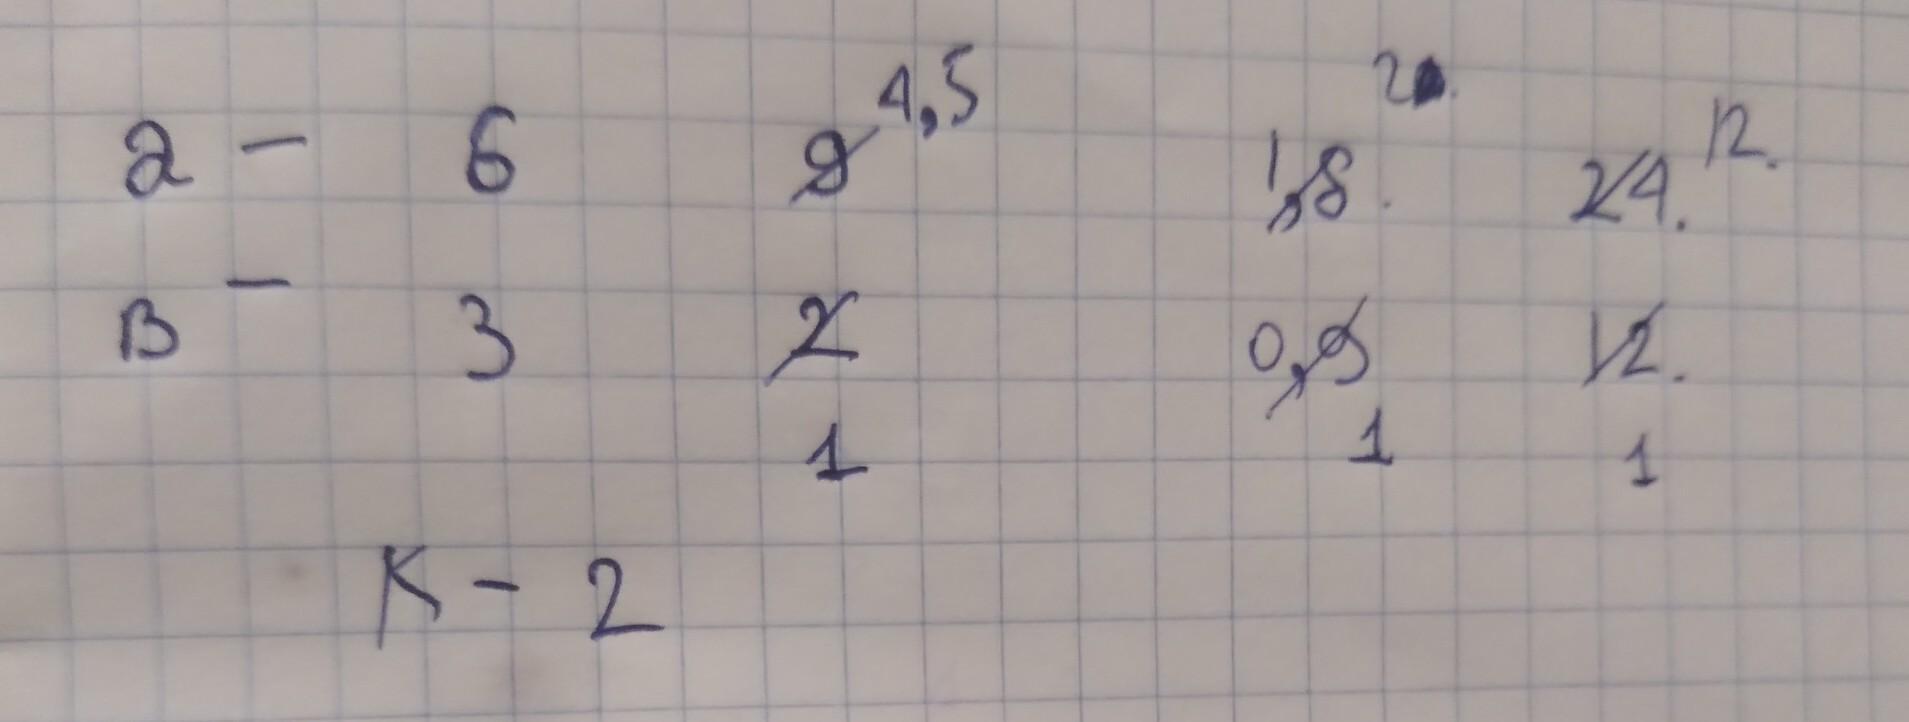 4,5 2 12.
a - 6 9 1,8. 24.
B - 3 2 0,9 12.
1 1 1
K - 2